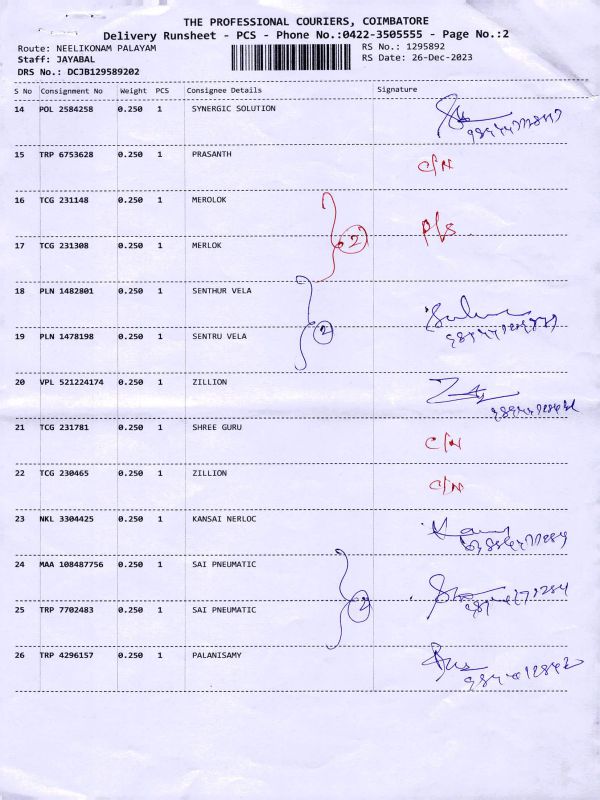 THE PROFESSIONAL COURIERS, COIMBATORE
Delivery Runsheet - PCS - Phone No.:0422-3505555 - Page No.:2
Route: NEELIKONAM PALAYAM
RS No.: 1295892
Staff: JAYABAL
RS Date: 26-Dec-2023
DRS No.: DCJB129589202
S No Consignment No Weight PCS Consignee Details Signature
14 POL 2584258 0.250 1 SYNERGIC SOLUTION
15 TRP 6753628 0.250 1 PRASANTH C/N
16 TCG 231148 0.250 1 MEROLOK
2 P/S
17 TCG 231308 0.250 1 MERLOK
18 PLN 1482801 0.250 1 SENTHUR VELA
2
19 PLN 1478198 0.250 1 SENTRU VELA
20 VPL 521224174 0.250 1 ZILLION
21 TCG 231781 0.250 1 SHREE GURU C/N
22 TCG 230465 0.250 1 ZILLION C/N
23 NKL 3304425 0.250 1 KANSAI NERLOC
24 MAA 108487756 0.250 1 SAI PNEUMATIC
2
25 TRP 7702483 0.250 1 SAI PNEUMATIC
26 TRP 4296157 0.250 1 PALANISAMY